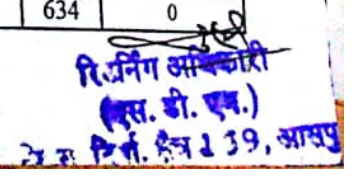 634 0
रिटर्निंग अधिकारी
(एस. डी. एम.)
139, आसपु